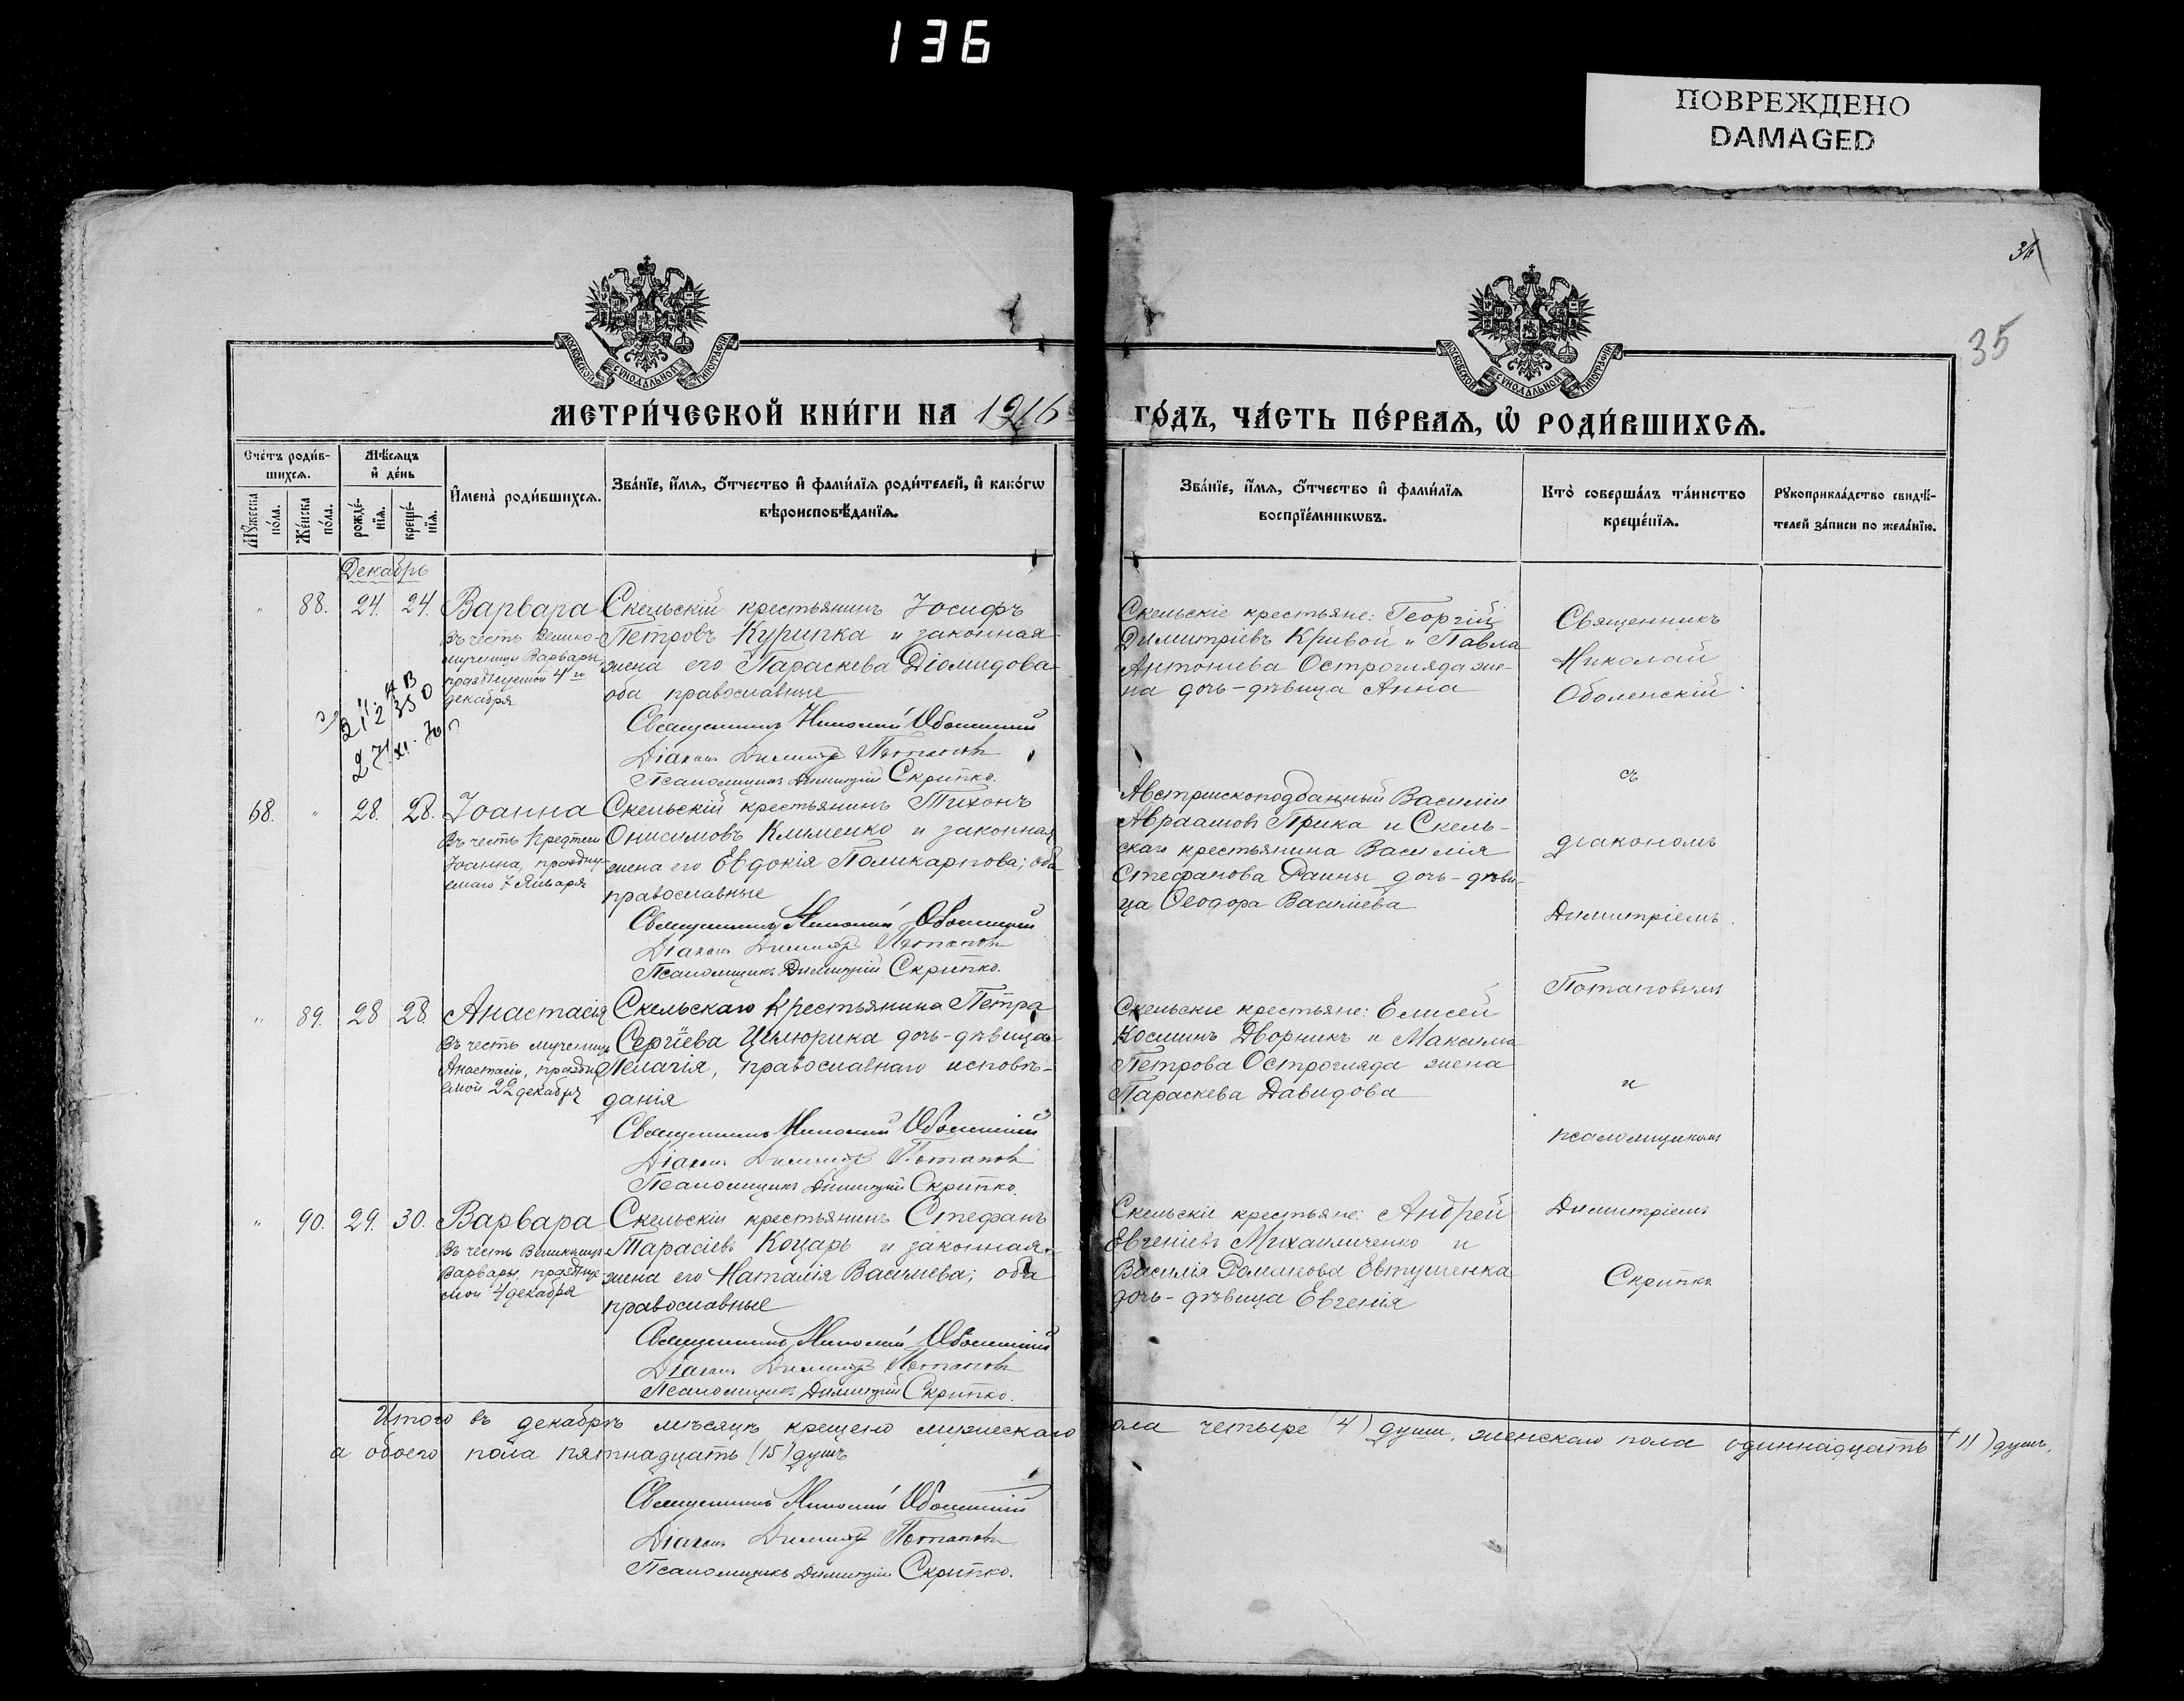 136
ПОВРЕЖДЕНО
DAMAGED
34
35
МОСКОВСКОЙ СУНОДАЛЬНОЙ ТИПОГРАФІИ
МОСКОВСКОЙ СУНОДАЛЬНОЙ ТИПОГРАФІИ
МЕТРИ́ЧЕСКОЙ КНИ́ГИ НА 1916
ГО́ДЪ, ЧА́СТЬ ПЕ́РВАѦ, Ѡ҆ РОДИ́ВШИХСѦ.
Сче́тъ роди́в-
шихсѧ.
Мѣ́сѧцъ
и҆ де́нь
Мꙋ́жеска
по́ла.
Же́нска
по́ла.
рожде́-
нїѧ.
креще́-
нїѧ.
И҆мена̀ роди́вшихсѧ.
Зва́нїе, и҆́мѧ, ѻ҆́тчество и҆ фами́лїѧ роди́телей, и҆ како́гѡ
вѣроисповѣ́данїѧ.
Зва́нїе, и҆́мѧ, ѻ҆́тчество и҆ фами́лїѧ
воспрїе́мникѡвъ.
Кто̀ соверша́лъ та́инство
креще́нїѧ.
Рꙋкоприкла́дство свидѣ́-
телей за́писи по жела́нїю.
Декабрь
" 88. 24. 24. Варвара
Въ честь Велико-
мученицы Варвары,
празднуемой 4го
декабря
Скельскій крестьянинъ Іосифъ
Петровъ Курипка и законная
жена его Параскева Діомидова
оба православные
Священникъ Николай Оболенскій
Діаконъ Димитрій Потаповъ
Псаломщикъ Димитрій Скрипко.
Скельскіе крестьяне: Георгій
Димитріевъ Кривой и Павла
Антоніева Остроглядa же-
на дочь-дѣвица Анна
68. " 28. 28. Іоанна
Въ честь Предтечи
Іоанна, праздну-
емаго 7 Января
Скельскій крестьянинъ Тихонъ
Онисимовъ Клименко и законная
жена его Евдокія Поликарпова; оба
православные
Священникъ Николай Оболенскій
Діаконъ Димитрій Потаповъ
Псаломщикъ Димитрій Скрипко.
Австрійскоподданный Василій
Авраамовъ Прика и Скель-
скаго крестьянина Василія
Стефанова дочь-дѣви-
ца Ѳеодора Васильева
" 89. 28 28. Анастасія
Въ честь мученицы
Анастасіи, праздну-
емой 22 декабря
Скельскаго крестьянина Петра
Сергіева Цилюрика дочь-дѣвица
Пелагія, православнаго исповѣ-
данія
Священникъ Николай Оболенскій
Діаконъ Димитрій Потаповъ
Псаломщикъ Димитрій Скрипко.
Скельскіе крестьяне: Елисей
Косминъ Дворникъ и Максима
Петрова Остроглядa жена
Параскева Давидова
" 90. 29. 30. Варвара
Въ честь Великомуч.
Варвары, праздне-
мой 4 декабря
Скельскій крестьянинъ Стефанъ
Тарасіевъ Коцарь и законная
жена его Наталія Васильева; оба
православные
Священникъ Николай Оболенскій
Діаконъ Димитрій Потаповъ
Псаломщикъ Димитрій Скрипко.
Скельскіе крестьяне: Андрей
Евгеніевъ Михайличенко и
Василія Романова Евтушенка
дочь-дѣвица Евгенія
Священникъ
Николай
Оболенскій
съ
діакономъ
Димитріемъ
Потаповымъ
и
псаломщикомъ
Димитріемъ
Скрипко
Итого въ декабрѣ мѣсяцѣ крещено мужескаго пола четыре (4) души, женскаго пола одиннадцать (11) душъ,
а обоего пола пятнадцать (15) душъ
Священникъ Николай Оболенскій
Діаконъ Димитрій Потаповъ
Псаломщикъ Димитрій Скрипко.